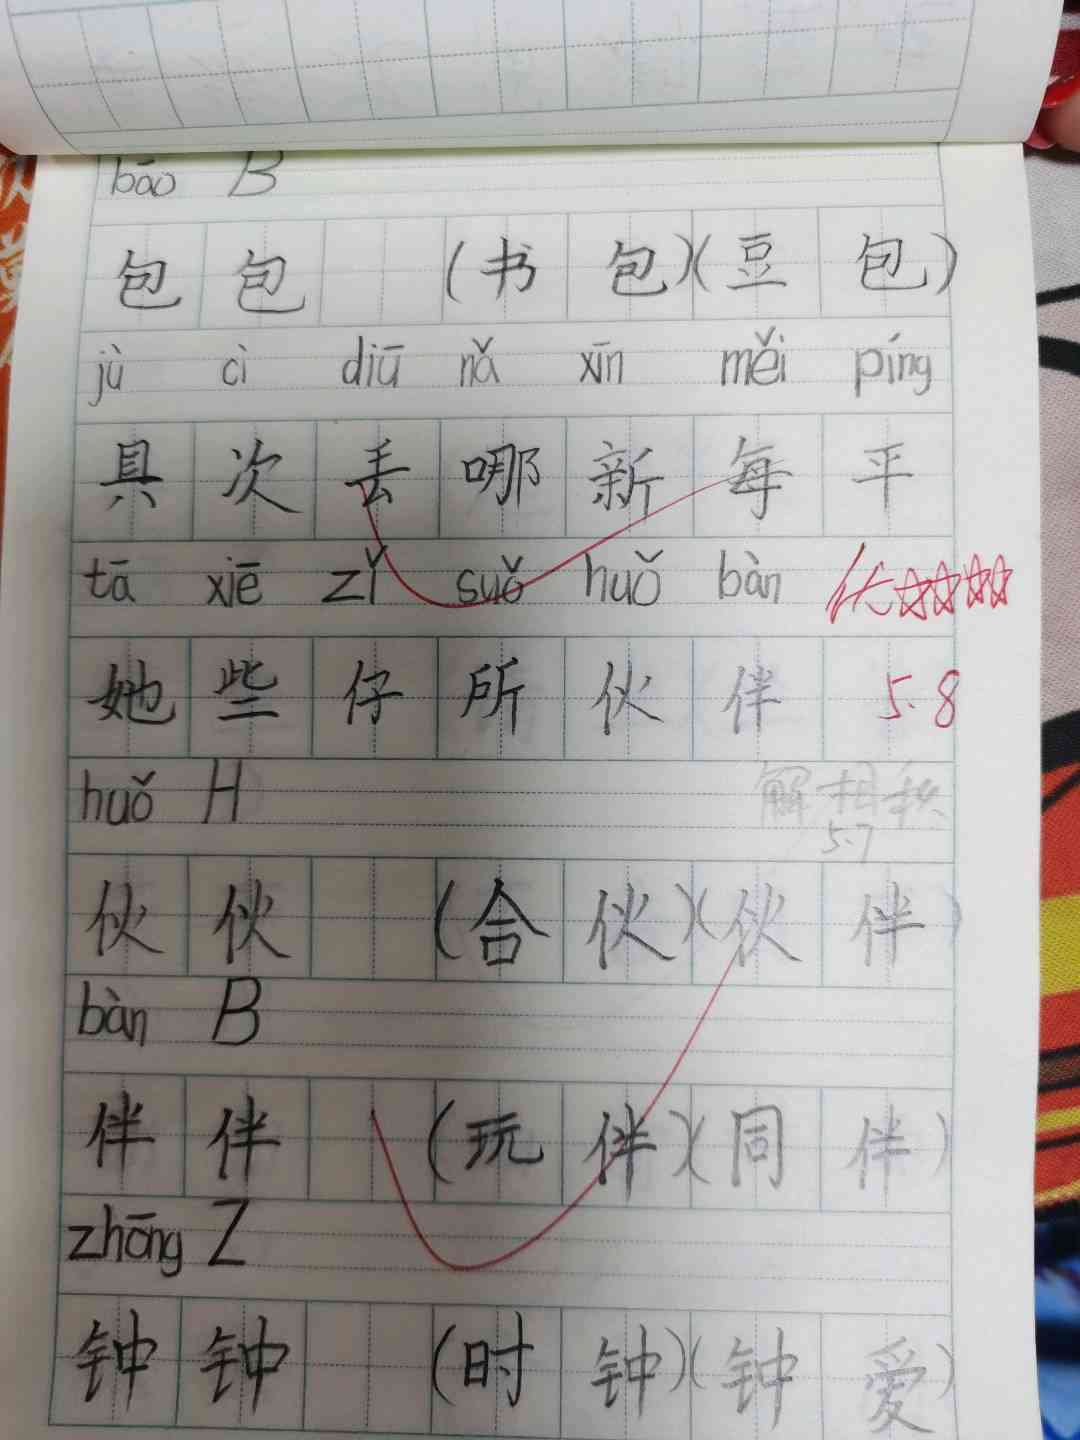 bāo B
包 包 (书 包)(豆 包)
jù cì diū nǎ xīn měi píng
具 次 丢 哪 新 每 平
tā xiē zǐ suǒ huǒ bàn 优☆☆☆☆
她 些 仔 所 伙 伴 5.8
huǒ H
5.7
伙 伙 (合 伙)(伙 伴)
bàn B
伴 伴 (玩 伴)(同 伴)
zhōng Z
钟 钟 (时 钟)(钟 爱)